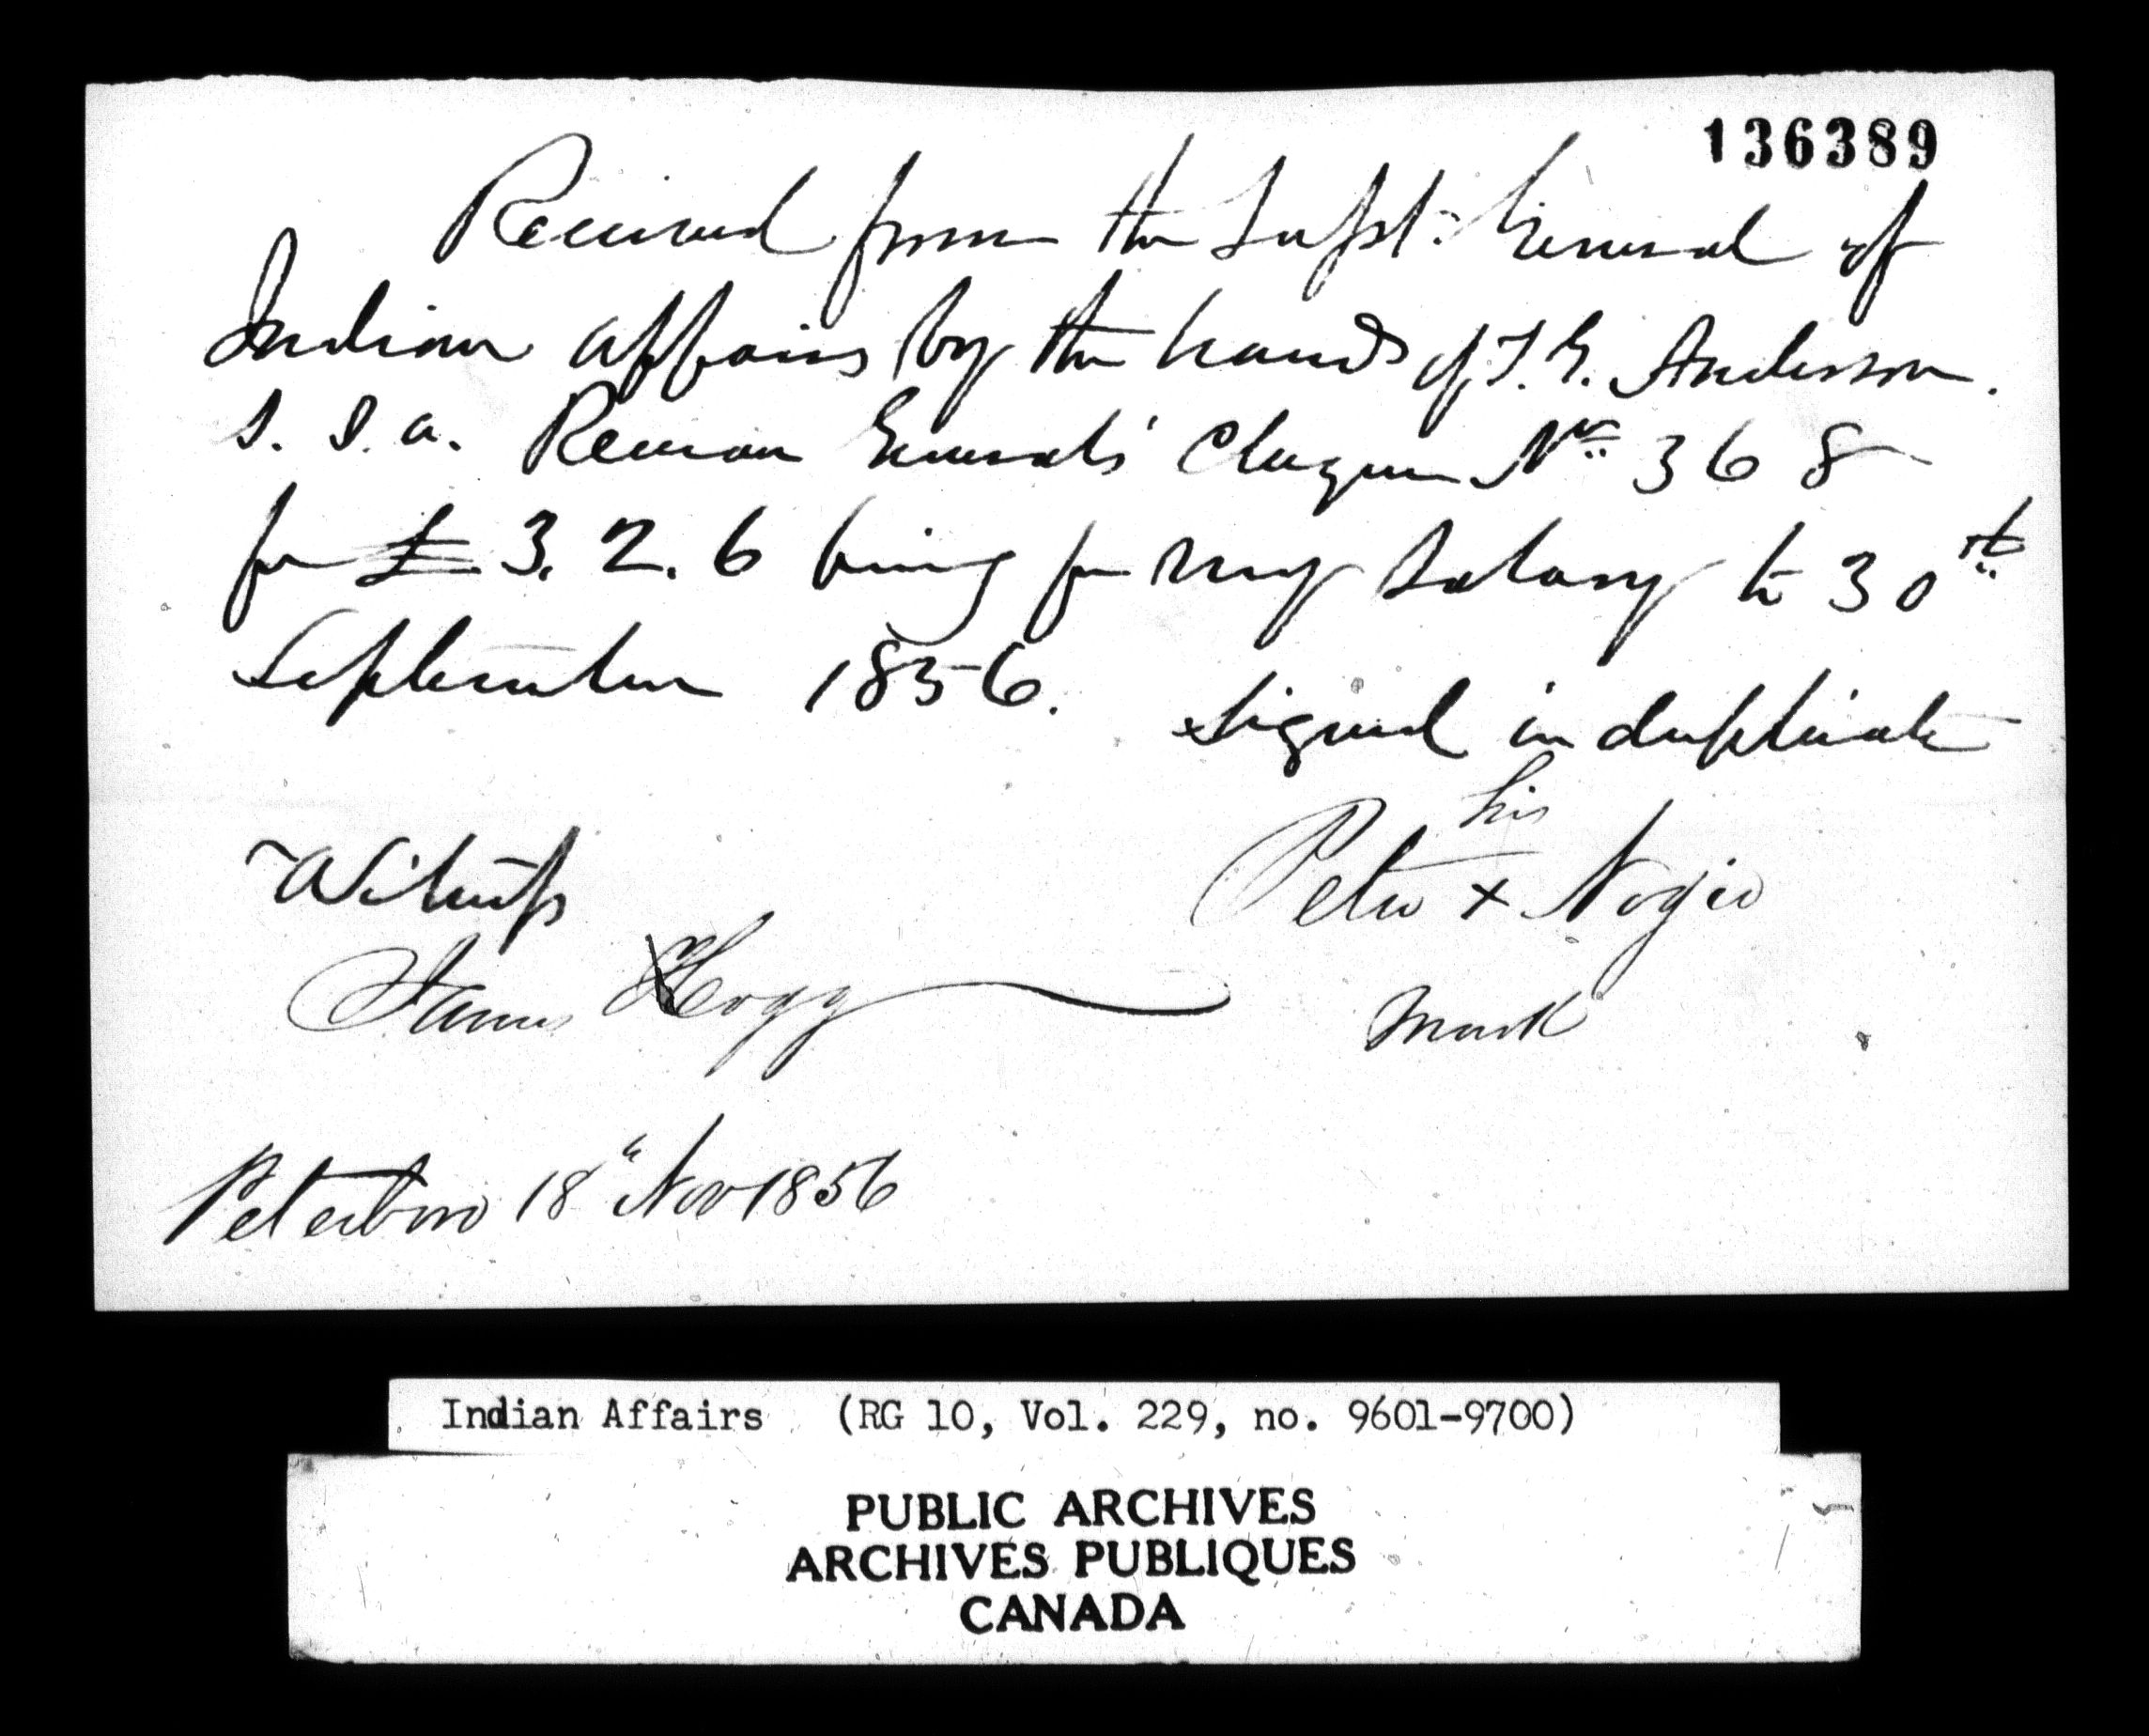 136389
Received from the Supt. General of
Indian affairs by the hands of T. G. Anderson.
S. I. a. Receiver General's Cheque No 368
for £ 3. 2. 6 being for my Salary to 30th
September 1856.
Signed in duplicate
his
Witness
Peter x Nogie
James Hogg
Mark
Peterboro 18" Nov 1856
Indian Affairs (RG 10, Vol. 229, no. 9601-9700)
PUBLIC ARCHIVES
ARCHIVES PUBLIQUES
CANADA